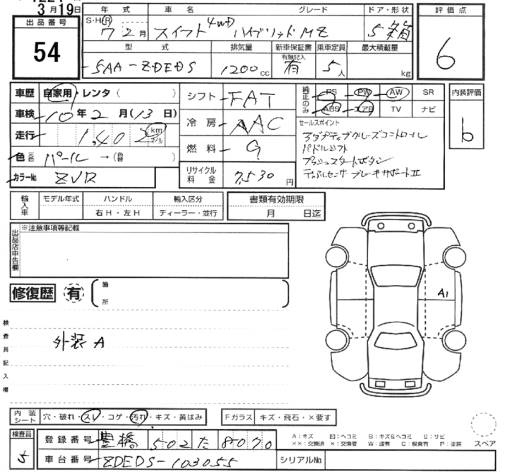 3月19日
出品番号
54
年式 車名 グレード ドア・形状
S・H・R 7年2月 スイフト 4WD ハイブリッドMZ 5 箱
評価点
6
型式 排気量 新車保証書 乗車定員 最大積載量
5AA-ZDEDS 1200cc 有 5人 kg
車歴 自家用・レンタ( )
車検 10年2月(13日)
走行 1,140 km
色 パール→( )
カラーNo. ZVR
シフト FAT
冷房 AAC
燃料 G
リサイクル料金 7,530
純正のみ
PS PW AW SR
ABS TV ナビ
セールスポイント
アダプティブクルーズコントロール
パドルシフト
プッシュスタートボタン
デュアルセンサーブレーキサポートⅡ
内装評価
b
輸入車 モデル年式 ハンドル 輸入区分
年 右H・左H ディーラー・並行
書類有効期限
月 日迄
出品店申告欄
※注意事項等記載
修復歴 有 箇所
検査員記入欄
外装A
A1
内装シート 穴・破れ・スレ・コゲ・汚れ・キズ・黄ばみ
Fガラス キズ・飛石・×要す
スペア
検査員
5
登録番号 豊橋 502 た 8070
車台番号 ZDEDS-103055
シリアルNo.